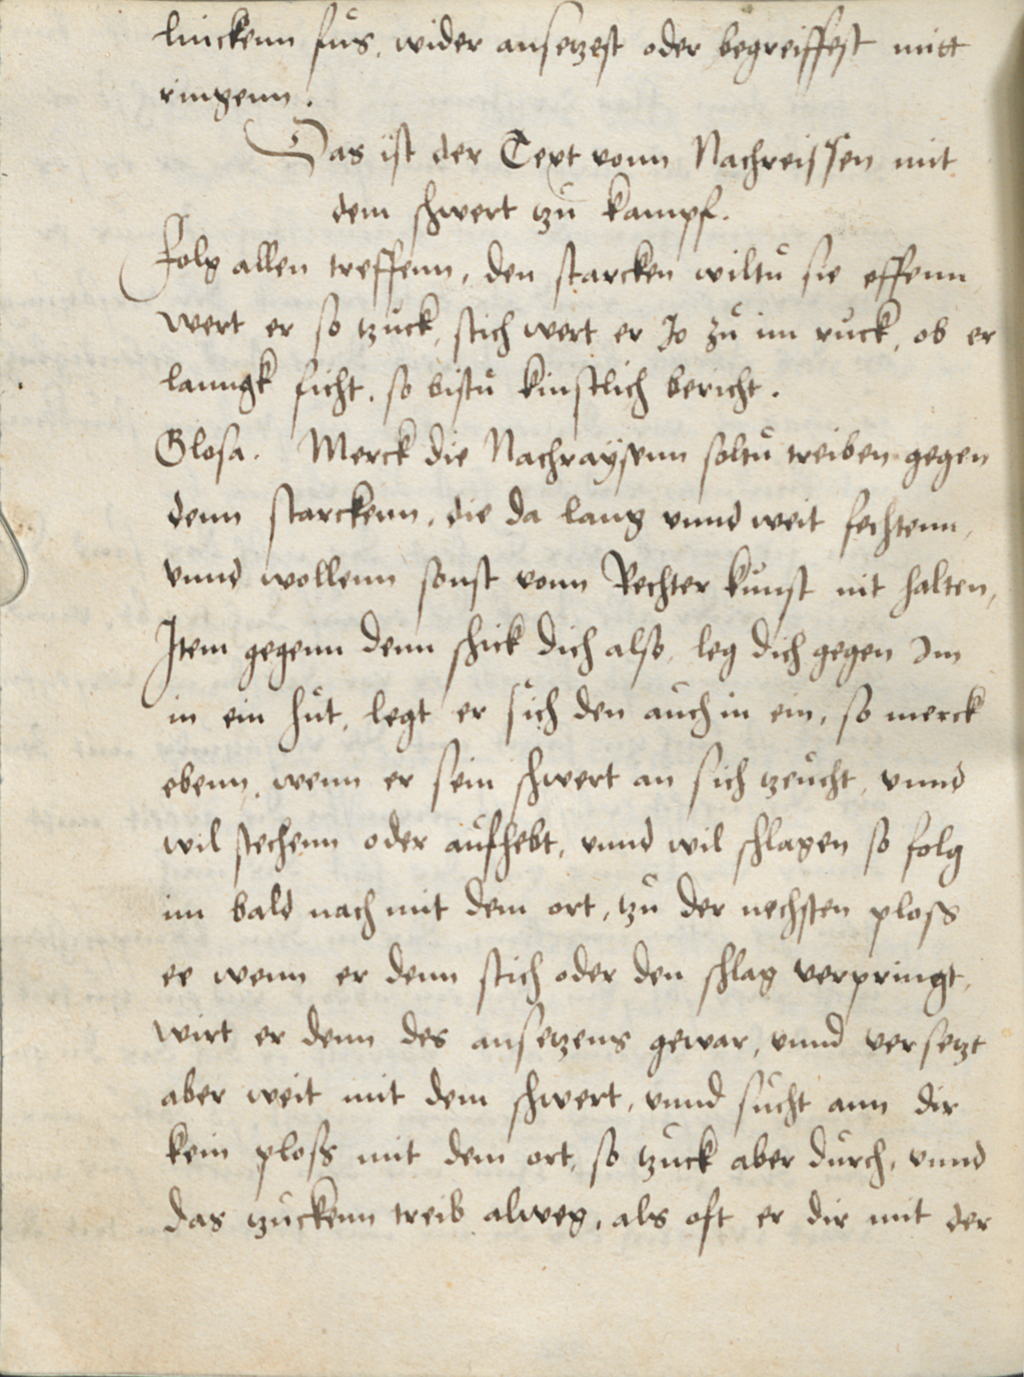 linckenn fůs, wider ansetzest oder begreiffest mitt
ringenn.
Das ist der Text vonn Nachreissen mit
dem schwert tzů kampf.
Folg allen treffenn, den starcken wiltů sie effenn
wert er so tzuck, stich wert er Jo zů im ruck, ob er
lanngk ficht, so bistů kinstlich bericht.
Glosa. Merck die Nachraÿsenn soltů treiben gegen
denn starckenn, die da lang vnnd weit fechtenn,
vnnd wollenn sonst vonn Rechter kůnst nit halten,
Item gegenn denn schick dich also, leg dich gegen Im
in ein hůt, legt er sich den aůch in ein, so merck
ebenn, wenn er sein schwert an sich tzeůcht, vnnd
wil stechenn oder aůfhebt, vnnd wil schlagen so folg
im bald nach mit dem ort, tzů der nechsten ploss
ee wenn er denn stich oder den schlag verpringt,
wirt er denn des ansetzens gewar, vnnd versetzt
aber weit mit dem schwert, vnnd sůcht ann dir
kein ploss mit dem ort, so tzůck aber důrch, vnnd
das tzůckenn treib alweg, als oft er dir mit der